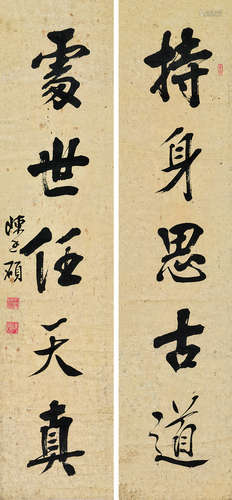 持身思古道
處世任天真
陳玉碩